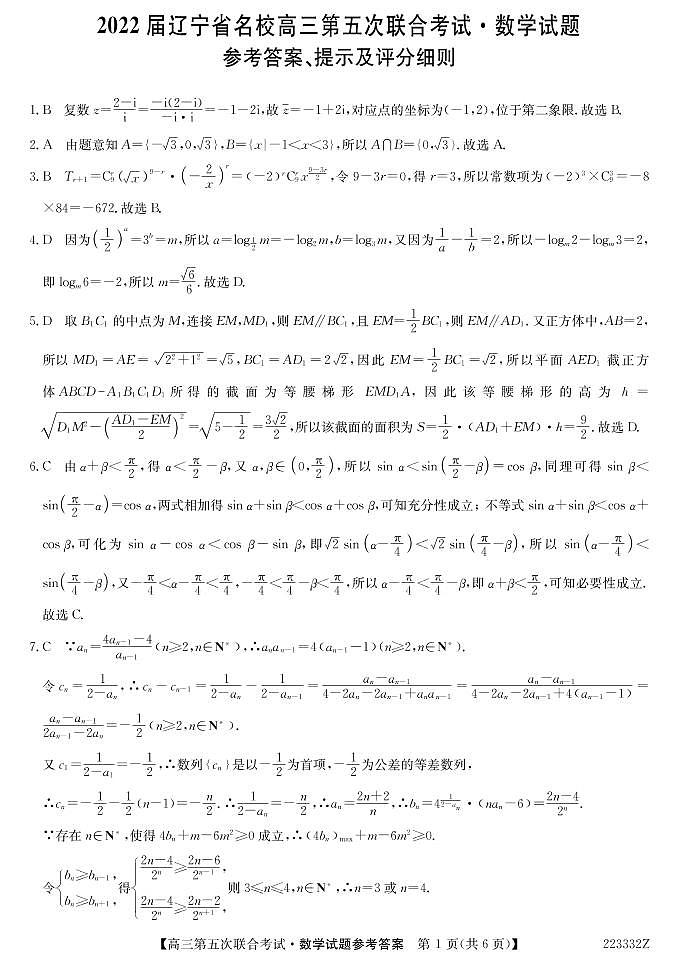 2022 届辽宁省名校高三第五次联合考试·数学试题
参考答案、提示及评分细则
1. B 复数 z=\frac{2-i}{i}=\frac{-i(2-i)}{-i·i}=-1-2i,故 \bar{z}=-1+2i,对应点的坐标为(-1,2),位于第二象限.故选 B.
2. A 由题意知 A={-√3,0,√3},B={x|-1<x<3},所以 A∩B={0,√3}.故选 A.
3. B T_{r+1}=C_9^r(√x)^{9-r}·(-\frac{2}{x})^r=(-2)^rC_9^rx^{\frac{9-3r}{2}},令 9-3r=0,得 r=3,所以常数项为(-2)^3×C_9^3=-8
×84=-672.故选 B.
4. D 因为(\frac{1}{2})^a=3^b=m,所以 a=log_{\frac{1}{2}}m=-log_2m,b=log_3m,又因为\frac{1}{a}-\frac{1}{b}=2,所以-log_m2-log_m3=2,
即 log_m6=-2,所以 m=\frac{√6}{6}.故选 D.
5. D 取 B_1C_1 的中点为 M,连接 EM,MD_1,则 EM∥BC_1,且 EM=\frac{1}{2}BC_1,则 EM∥AD_1.又正方体中,AB=2,
所以 MD_1=AE=\sqrt{2^2+1^2}=√5,BC_1=AD_1=2√2,因此 EM=\frac{1}{2}BC_1=√2,所以平面 AED_1 截正方
体 ABCD-A_1B_1C_1D_1 所得的截面为等腰梯形 EMD_1A,因此该等腰梯形的高为 h=
\sqrt{D_1M^2-(\frac{AD_1-EM}{2})^2}=\sqrt{5-\frac{1}{2}}=\frac{3√2}{2},所以该截面的面积为 S=\frac{1}{2}·(AD_1+EM)·h=\frac{9}{2}.故选 D.
6. C 由 α+β<\frac{π}{2},得 α<\frac{π}{2}-β,又 α,β∈(0,\frac{π}{2}),所以 sin α<sin(\frac{π}{2}-β)=cos β,同理可得 sin β<
sin(\frac{π}{2}-α)=cos α,两式相加得 sin α+sin β<cos α+cos β,可知充分性成立;不等式 sin α+sin β<cos α+
cos β,可化为 sin α-cos α<cos β-sin β,即√2 sin(α-\frac{π}{4})<√2 sin(\frac{π}{4}-β),所以 sin(α-\frac{π}{4})<
sin(\frac{π}{4}-β),又-\frac{π}{4}<α-\frac{π}{4}<\frac{π}{4},-\frac{π}{4}<\frac{π}{4}-β<\frac{π}{4},所以 α-\frac{π}{4}<\frac{π}{4}-β,即 α+β<\frac{π}{2},可知必要性成立.
故选 C.
7. C ∵a_n=\frac{4a_{n-1}-4}{a_{n-1}}(n≥2,n∈N*),∴a_na_{n-1}=4(a_{n-1}-1)(n≥2,n∈N*).
令 c_n=\frac{1}{2-a_n},∴c_n-c_{n-1}=\frac{1}{2-a_n}-\frac{1}{2-a_{n-1}}=\frac{a_n-a_{n-1}}{4-2a_n-2a_{n-1}+a_na_{n-1}}=\frac{a_n-a_{n-1}}{4-2a_n-2a_{n-1}+4(a_{n-1}-1)}=
\frac{a_n-a_{n-1}}{2a_{n-1}-2a_n}=-\frac{1}{2}(n≥2,n∈N*).
又 c_1=\frac{1}{2-a_1}=-\frac{1}{2},∴数列{c_n}是以-\frac{1}{2}为首项,-\frac{1}{2}为公差的等差数列,
∴c_n=-\frac{1}{2}-\frac{1}{2}(n-1)=-\frac{n}{2}.∴\frac{1}{2-a_n}=-\frac{n}{2},∴a_n=\frac{2n+2}{n},∴b_n=4^{\frac{1}{2-a_n}}·(na_n-6)=\frac{2n-4}{2^n}.
∵存在 n∈N*,使得 4b_n+m-6m^2≥0 成立,∴(4b_n)_{max}+m-6m^2≥0.
令{b_n≥b_{n-1}, b_n≥b_{n+1},得{\frac{2n-4}{2^n}≥\frac{2n-6}{2^{n-1}}, \frac{2n-4}{2^n}≥\frac{2n-2}{2^{n+1}},则 3≤n≤4,n∈N*,∴n=3 或 n=4.
【高三第五次联合考试·数学试题参考答案 第 1 页(共 6 页)】 223332Z